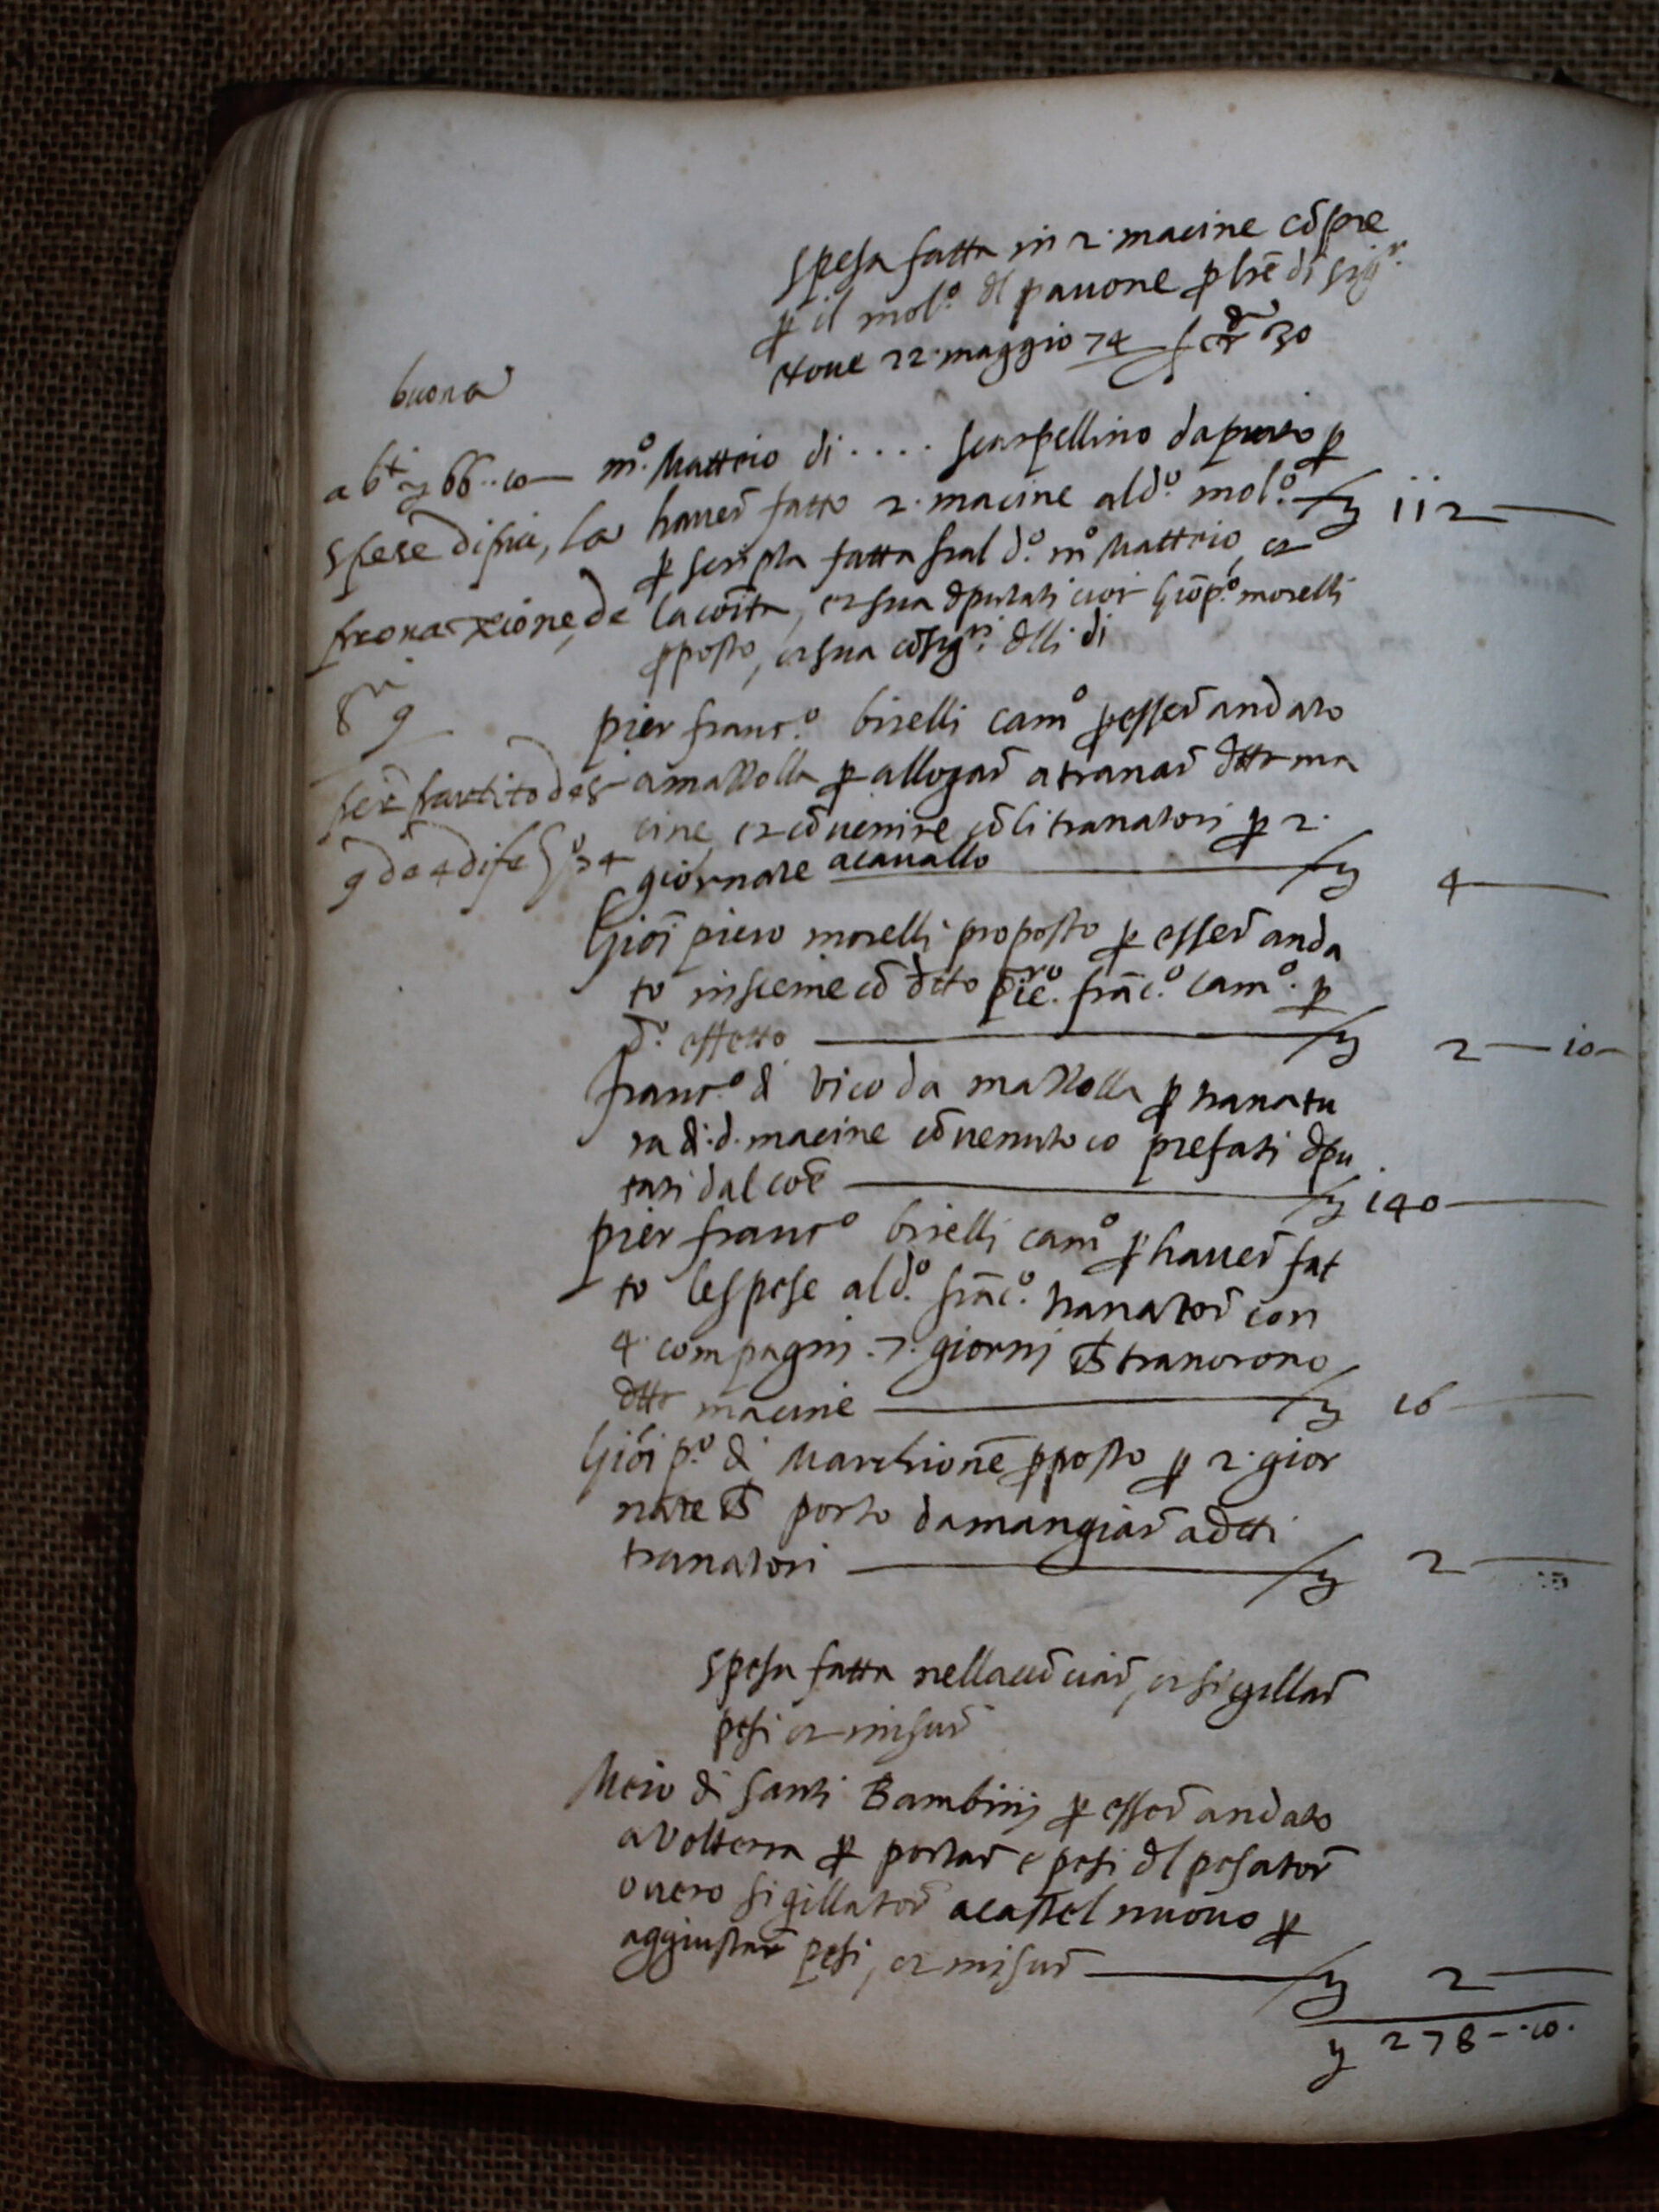 spesa fatta in 2. macine cōpre
p il mol.o dl pauone p lrē di
22 maggio 74 30
buona
m.o Matteio di .... scarpellino da prato p
hauer fatto 2. macine al d.o mol.o 112
p scripta fatta fral d.o m.o Matteio, et
la coīta, et sua dputati cioè Giōp.o morelli
pposto, et sua cōsig.ri dlli di
a b 66..10
spese di più, la
8 9
pier franc.o birelli cam.o p esser andato
a mazzolla p allogar a tranar dtte ma
cine et cōuenire cō li tranatori p 2.
giornate acauallo 4
Giōi piero morelli proposto p esser anda
to insieme cō dtto pie.ro frāc.o cam.o p
d.o effetto 2 — 10
franc.o di vico da mazzolla p tranatu
ra di d. macine cōuenuto co prefati dpu
tati dal coē 140
pier franc.o birelli cam.o p hauer fat
to le spese al d.o frāc.o tranator con
4. compagni .7. giorni tranorono
dtte macine 16
Giōi p.o di Marchionē pposto p 2. gior
nate porto da mangiar a dtti
tranatori 2
spesa fatta nell , et sigillar
pesi et misur
Meio di santi Bambini p esser andato
a Volterra p portar e pesi dl pesator
ouero sigillator a castel nuouo p
aggiustar pesi, et misur 2
278 — .10.